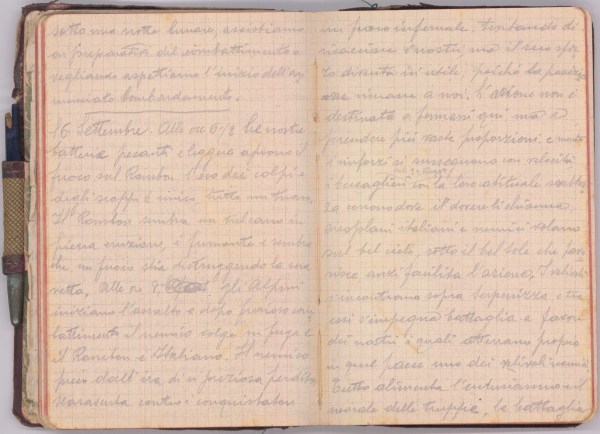 sotto una notte lunare, assistiamo
ai preparativi del combattimento e
vegliando aspettiamo l'inizio dell'an
nunciato bombardamento.
16 Settembre. Alle ore 6½ le nostre
batterie pesanti e leggere aprono il
fuoco sul Rombon. L'eco dei colpi e
degli scoppi è unico, tutto un tuono,
Il Rombon sembra un vulcano in
piena eruzione, è fumante e sembra
che un fuoco stia distruggendo la sua
vetta. Alle ore 9 gli Alpini
iniziano l'assalto e dopo furioso com
battimento il nemico volge in fuga e
il Rombon è Italiano. Il nemico
preso dall'ira di sì preziosa perdita
scaraventa contro i conquistatori
un fuoco infernale, tentando di
ricacciare i nostri, ma il suo sfor
zo diventa inutile, poichè la posizi
one rimane a noi. L'azione non è
destinata a fermarsi qui, ma a
prendere più vaste proporzioni, e
i rinforzi si susseguono con velocità
i bersaglieri con la loro abituale sveltez
za corrono dove il dovere li chiama
areoplani italiani e nemici volano
sul bel cielo, sotto il bel sole che favo
risce anzi facilita l'azione. I velivoli
s'incontrano sopra Serpenizza, e tra
essi s'impegna battaglia a favore
dei nostri i quali atterrano proprio
in quel paese uno dei velivoli nemici
Tutto alimenta l'entusiasmo e il
morale delle truppe, la battaglia